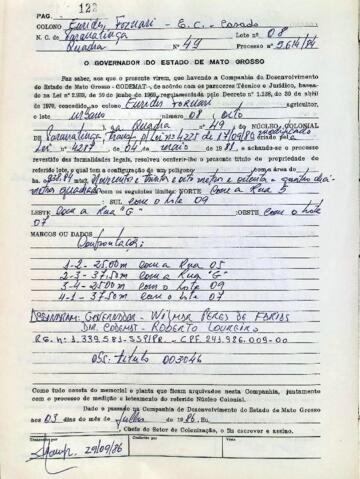 PAG. 122
COLONO Eurides Fornari - E.C. - Casado
N. C. de Paranatinga Lote nº 08
Quadra nº 49 Processo nº 2.614/84
O GOVERNADOR DO ESTADO DE MATO GROSSO
Faz saber, aos que o presente virem, que havendo a Companhia do Desenvolvimento
do Estado de Mato Grosso - CODEMAT-, de acordo com os pareceres Técnico e Jurídico, basea-
de 1970, concedido ao colono Eurides Fornari agricultor,
o lote urbano nº 08 oito
na Quadra nº 49 NÚCLEO COLONIAL
Paranatinga
Lei nº 4287 de 04 de maio de 1981 e achando-se o processo
revestido das formalidades legais, resolveu conferir-lhe o presente título de propriedade do
referido lote, o qual tem a configuração de um polígono com área de
com os seguintes limites: NORTE Com a Rua 5
SUL com o Lote 09
LESTE Com a Rua "G" OESTE Com o Lote
07
MARCOS OU DADOS
Confrontações:
1-2- 25,00m com a Rua 05
2-3- 37,50m com a Rua "G"
3-4- 25,00m com o Lote 09
4-1- 37,50m com o Lote 07
GOVERNADOR - WILMAR PERES DE FARIAS
DIR. CODEMAT - ROBERTO LOUREIRO
Obs: título 003046
Como tudo consta do memorial e planta que ficam arquivados nesta Companhia, juntamente
com o processo de medição e loteamento do referido Núcleo Colonial.
Dado e passado na Companhia de Desenvolvimento do Estado de Mato Grosso
aos 03 dias do mês de Julho de 1986. Eu,
Chefe do Setor de Colonização, o fiz escrever e assino.
29/09/86